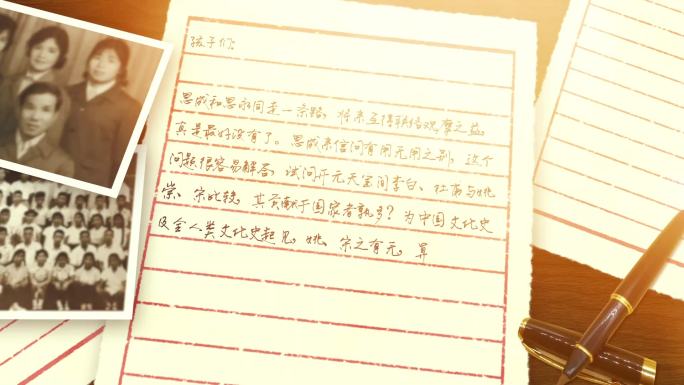 孩子们:
思成和思永同走一条路，将来互得联络观摩之益，
真是最好没有了。思成来信问有用无用之别，这个
问题很容易解答，试问开元天宝间李白、杜甫与姚
崇、宋比较，其贡献于国家者孰多？为中国文化史
及全人类文化史起见，姚、宋之有无，算